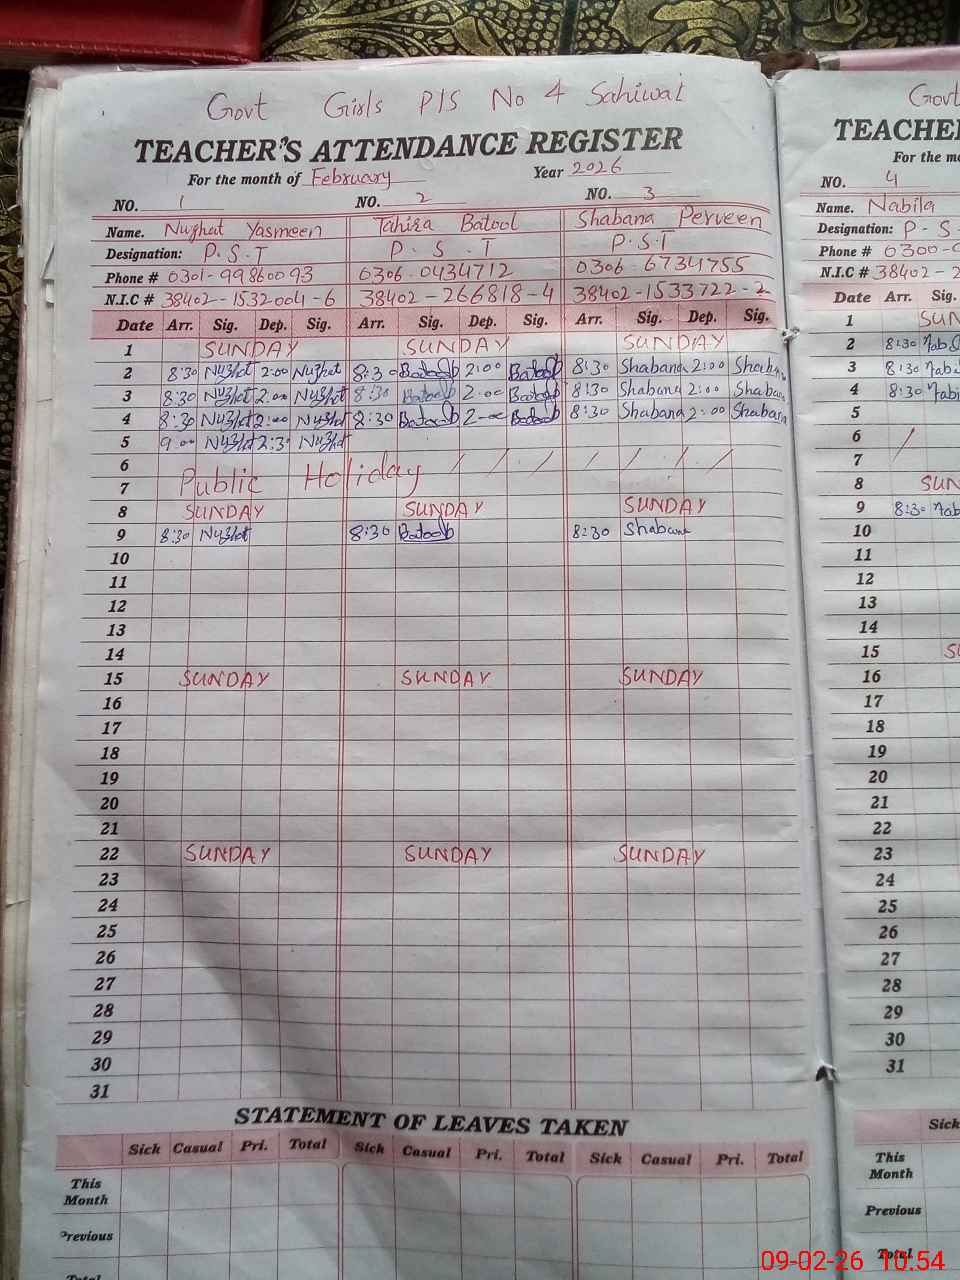 Govt Girls P/S No 4 Sahiwal
TEACHER'S ATTENDANCE REGISTER
For the month of February Year 2026
NO. 1 NO. 2 NO. 3
Name. Nuzhat Yasmeen Tahira Batool Shabana Perveen
Designation: P.S.T P.S.T P.S.T
Phone # 0301-99860093 0306-0434712 0306-6734755
N.I.C # 38402-1532004-6 38402-266818-4 38402-1533722-2
Date Arr. Sig. Dep. Sig. Arr. Sig. Dep. Sig. Arr. Sig. Dep. Sig.
1 SUNDAY SUNDAY SUNDAY
2 8:30 Nuzhat 2:00 Nuzhat 8:30 Batool 2:00 Batool 8:30 Shabana 2:00 Shabana
3 8:30 Nuzhat 2:00 Nuzhat 8:30 Batool 2:00 Batool 8:30 Shabana 2:00 Shabana
4 8:30 Nuzhat 2:00 Nuzhat 8:30 Batool 2:00 Batool 8:30 Shabana 2:00 Shabana
5 9:00 Nuzhat 2:30 Nuzhat
6
7 Public Holiday
8 SUNDAY SUNDAY SUNDAY
9 8:30 Nuzhat 8:30 Batool 8:30 Shabana
10
11
12
13
14
15 SUNDAY SUNDAY SUNDAY
16
17
18
19
20
21
22 SUNDAY SUNDAY SUNDAY
23
24
25
26
27
28
29
30
31
STATEMENT OF LEAVES TAKEN
Sick Casual Pri. Total Sick Casual Pri. Total Sick Casual Pri. Total
This Month
Previous
Total
Govt
TEACHER
For the mo
NO. 4
Name. Nabila
Designation: P-S-
Phone # 0300-9
N.I.C # 38402-2
Date Arr. Sig.
1 SUN
2 8:30 Nabi
3 8:30 Nabi
4 8:30 Nabi
5
6
7
8 SUN
9 8:30 Nab
10
11
12
13
14
15 SU
16
17
18
19
20
21
22
23
24
25
26
27
28
29
30
31
Sick
This Month
Previous
Total
09-02-26 10.54